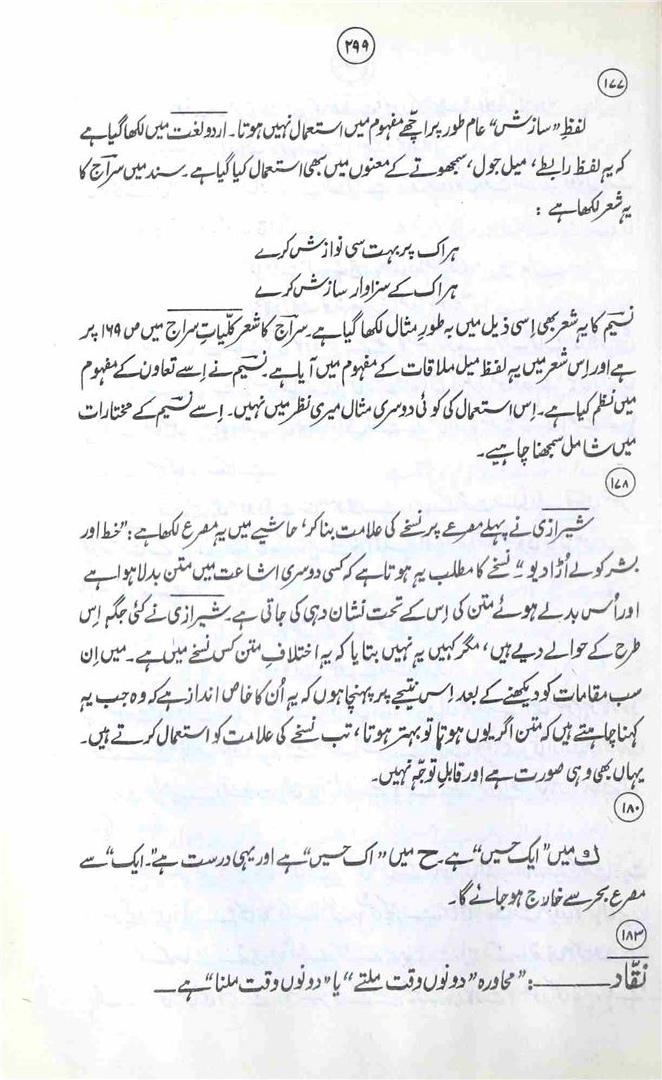 ۲۹۹
۱۷۷
لفظِ "سازش" عام طور پر اچھّے مفہوم میں استعمال نہیں ہوتا۔ اردو لغت میں لکھا گیا ہے
کہ یہ لفظ رابطے، میل جول، سمجھوتے کے معنوں میں بھی استعمال کیا گیا ہے۔ سند میں سراج کا
یہ شعر لکھا ہے :
ہر اک پر بہت سی نوازش کرے
ہر اک کے سزاوار سازش کرے
نسیم کا یہ شعر بھی اِسی ذیل میں بہ طورِ مثال لکھا گیا ہے۔ سراج کا شعر کلّیاتِ سراج میں ص ۱۶۹ پر
ہے اور اِس شعر میں یہ لفظ میل ملاقات کے مفہوم میں آیا ہے۔ نسیم نے اِسے تعاون کے مفہوم
میں نظم کیا ہے۔ اِس استعمال کی کوئی دوسری مثال میری نظر میں نہیں۔ اِسے نسیم کے مختارات
میں شامل سمجھنا چاہیے۔
۱۷۸
شیرازی نے پہلے مصرعے پر نسخے کی علامت بنا کر، حاشیے میں یہ مصرع لکھا ہے : "خط اور
بشر کو لے اُڑا دیو"۔ نسخے کا مطلب یہ ہوتا ہے کہ کسی دوسری اشاعت میں متن بدلا ہوا ہے
اور اُس بدلے ہوئے متن کی اِس کے تحت نشان دہی کی جاتی ہے۔ شیرازی نے کئی جگہ اِس
طرح کے حوالے دیے ہیں، مگر کہیں یہ نہیں بتایا کہ یہ اختلافِ متن کس نسخے میں ہے۔ میں اِن
سب مقامات کو دیکھنے کے بعد اِس نتیجے پر پہنچا ہوں کہ یہ اُن کا خاص انداز ہے کہ وہ جب یہ
کہنا چاہتے ہیں کہ متن اگر یوں ہوتا تو بہتر ہوتا، تب نسخے کی علامت کو استعمال کرتے ہیں۔
یہاں بھی وہی صورت ہے اور قابلِ توجّہ نہیں۔
۱۸۰
ک میں "ایک حسیں" ہے۔ ح میں "اک حسیں" ہے اور یہی درست ہے۔ "ایک" سے
مصرع بحر سے خارج ہو جائے گا۔
۱۸۳
نقّاد ـــــــــ : "محاورہ "دونوں وقت ملتے" یا "دونوں وقت ملنا" ہے ـــ